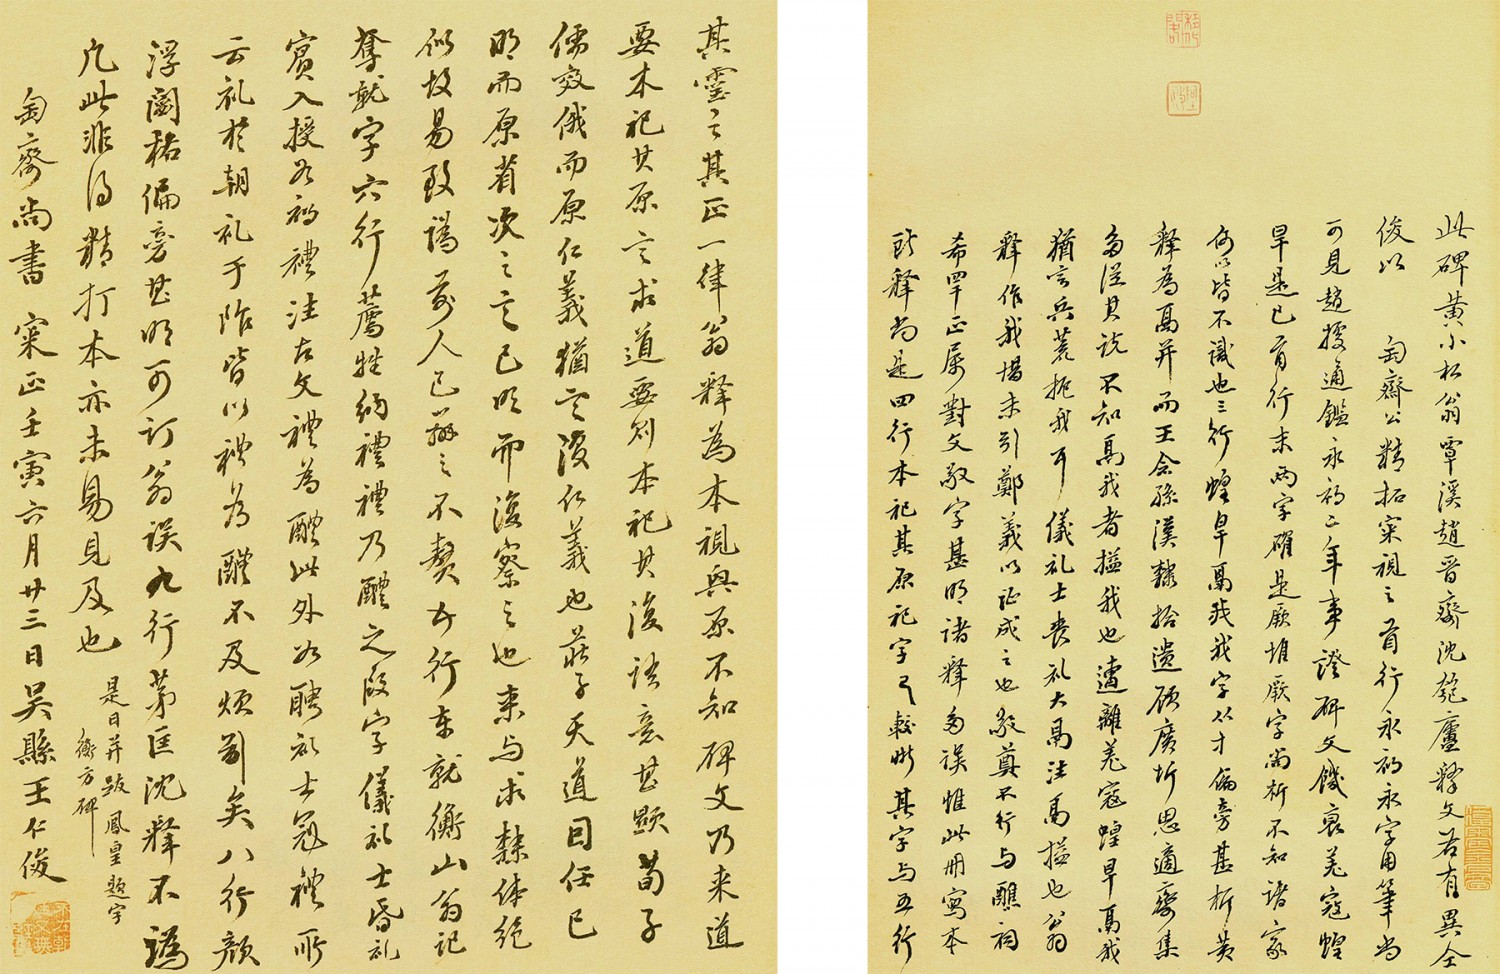 此碑黄小松翁覃溪趙晉齋沈匏廬釋文各有異仝
俊以 匋齋公精拓寀視之首行永初永字用筆尚
可見趙據通鑑永初二年事證碑文饑衰羌寇蝗
旱是已首行末兩字確是厥堆厥字尚析不知諸家
何以皆不識也三行蝗旱鬲我我字从扌偏旁甚析黄
釋為鬲并而王念孫漢隸拾遺顧廣圻思適齋集
多從其説不知鬲我者搤我也遭離羌寇蝗旱鬲我
猶言兵荒扼我耳儀礼士喪礼大鬲注鬲搤也翁
釋作我場未引鄭義以証成之也敬奠不行与醮祠
希罕正属對文敬字甚明諸釋多誤惟此冊寫本
釋尚是四行本祀其原祀字已較晰其字与五行
其靈之其正一律翁釋為本視與原不知碑文乃来道
要本祀其原言求道要則本祀其復語意甚顯荀子
儒效俄而原仁義猶言復仁義也莊子天道因任已
明而原省次之言已明而復察之也来与求隸体絶
似故易致譌前人已辨之不贅五行奉就衡山翁記
奪就字六行薦牲納禮禮乃醴之叚字儀礼士昏礼
賓入授如初禮注古文禮為醴此外如聘礼士冠禮所
云礼於朝礼于阼皆以禮為醴不及煩矣八行顏
浮闓祏偏旁甚明可訂翁誤九行第匡沈釋不譌
凡此非得精打本亦未易見及也
是日并跋鳳皇題字
衡方碑
匋齋尚書 寀正壬寅六月廿三日吴縣王仁俊